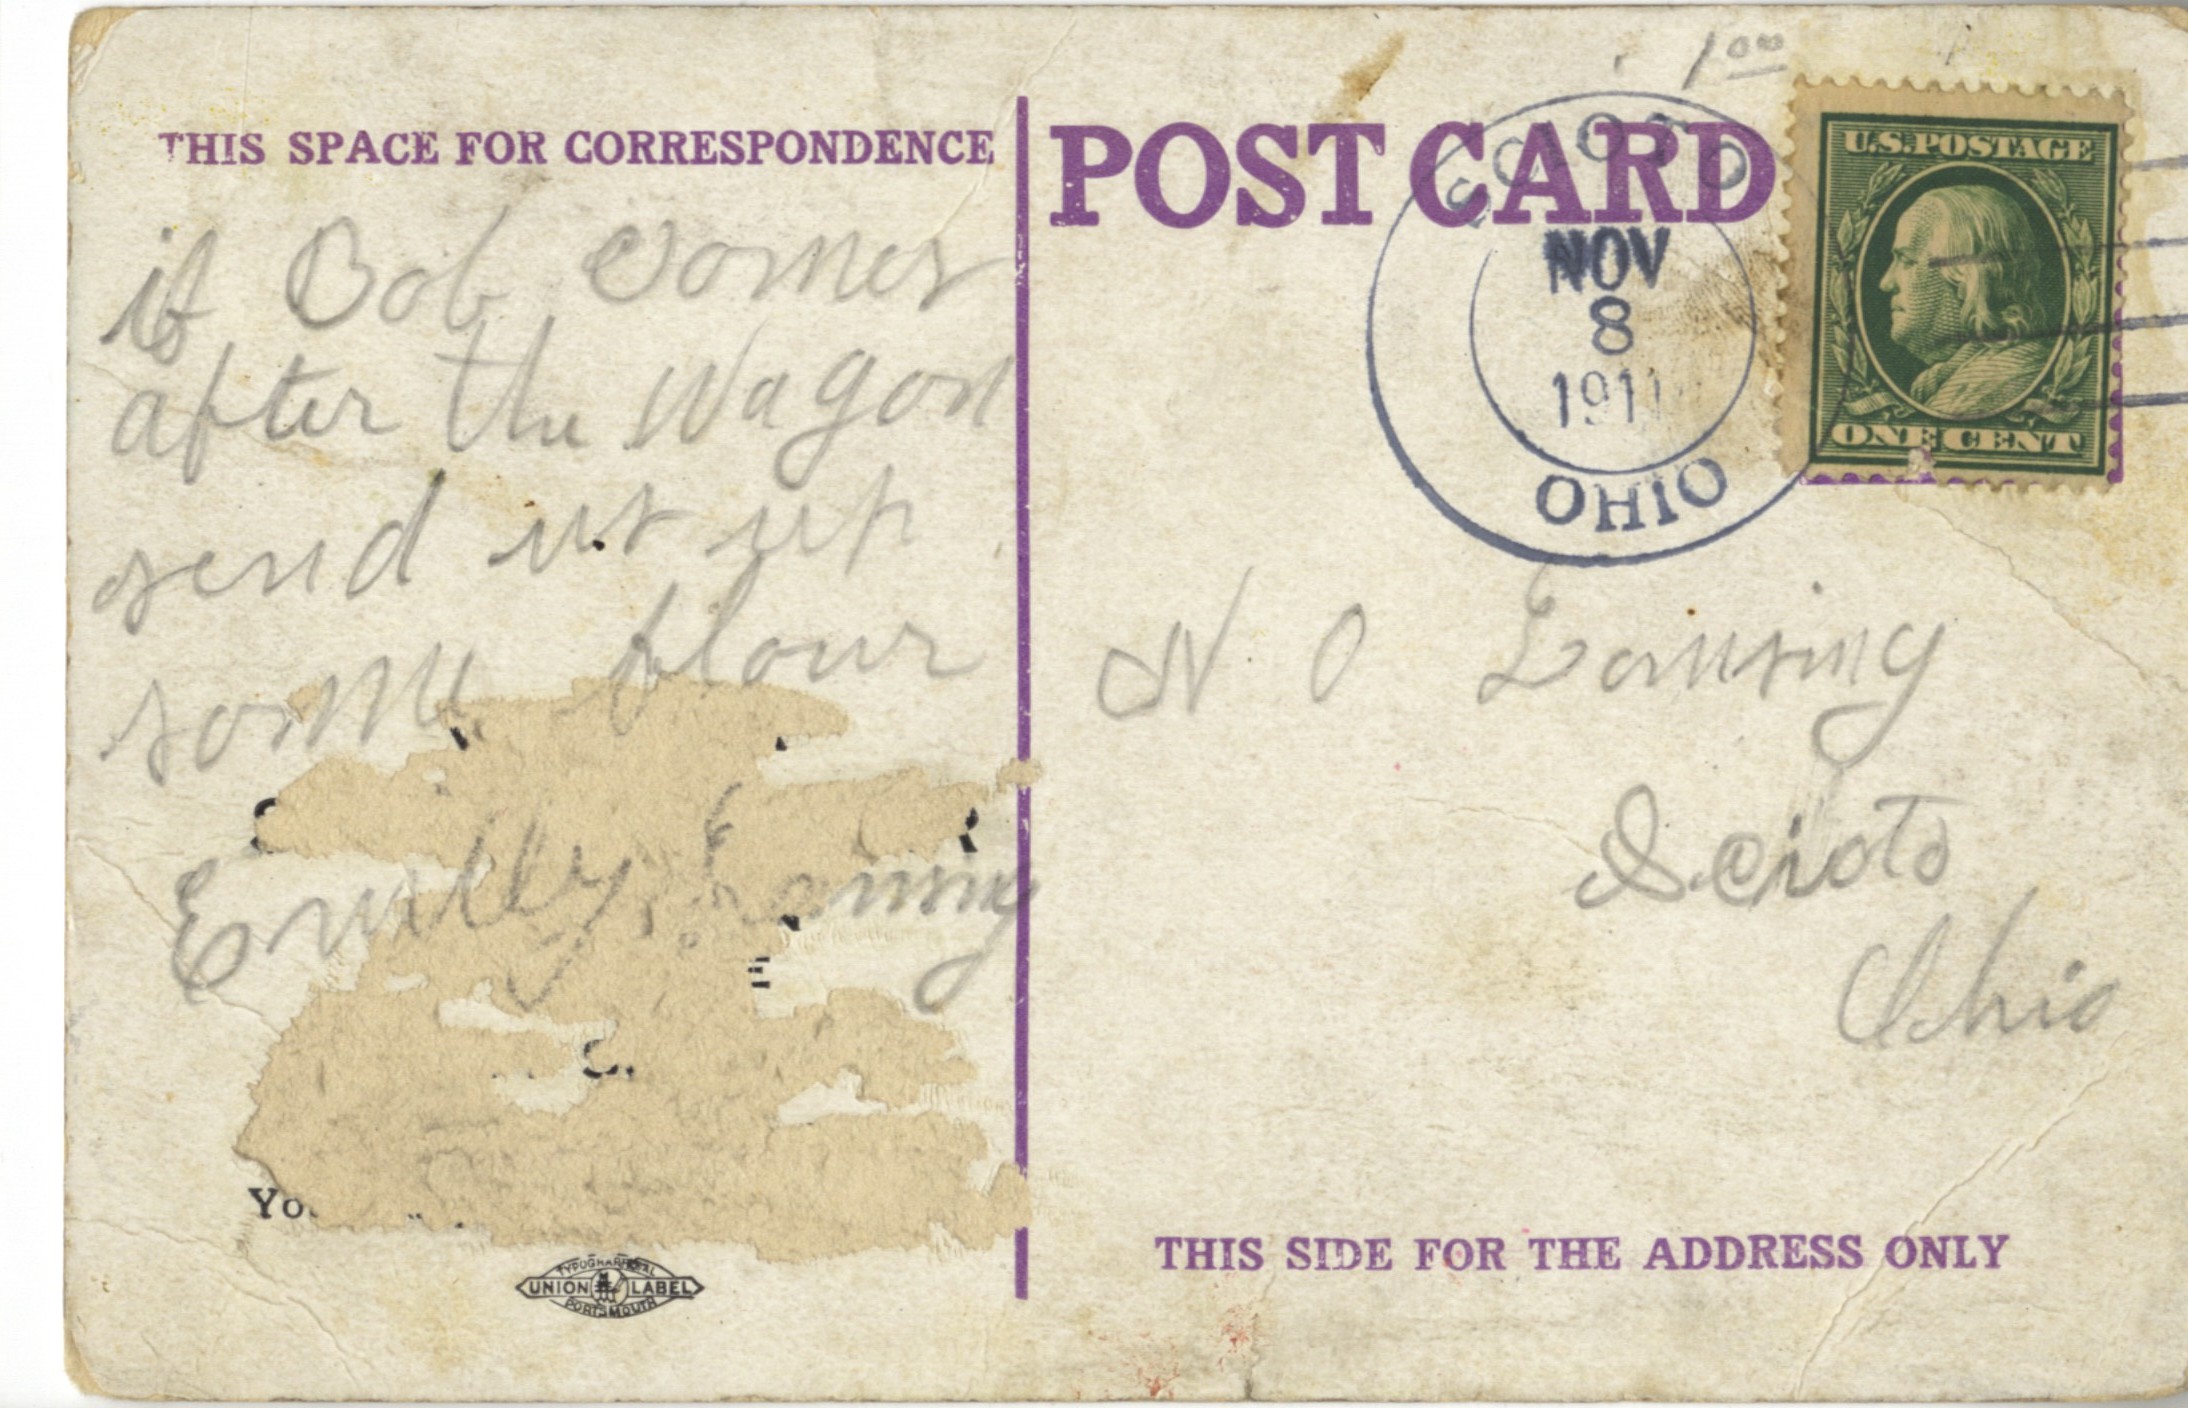 THIS SPACE FOR CORRESPONDENCE
if Bob comes
after the Wagon
send us up
some flour
Emilly Lansing
Yo
TYPOGRAPHICAL
UNION LABEL
PORTSMOUTH
1 00
POST CARD
SCIOTO
NOV
8
1911
OHIO
U.S. POSTAGE
ONE CENT
N O Lansing
Scioto
Ohio
THIS SIDE FOR THE ADDRESS ONLY